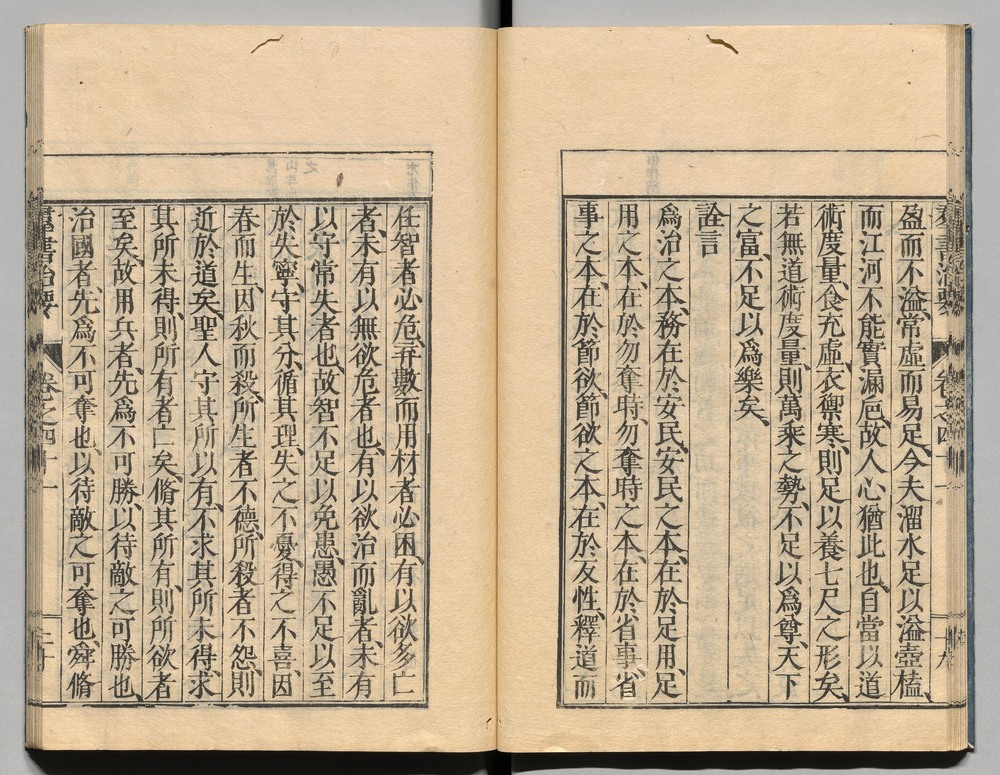 羣書治要 卷之四十一 十九
盈而不溢、常虛而易足、今夫溜水足以溢壺榼、
而江河不能實漏巵、故人心猶此也、自當以道
術度量、食充虛、衣禦寒、則足以養七尺之形矣、
若無道術度量、則萬乘之勢、不足以爲尊、天下
之富、不足以爲樂矣、
詮言
爲治之本、務在於安民、安民之本、在於足用、足
用之本、在於勿奪時、勿奪時之本、在於省事、省
事之本、在於節欲、節欲之本、在於反性、釋道而
任智者必危、弃數而用材者必困、有以欲多亡
者、未有以無欲危者也、有以欲治而亂者、未有
以守常失者也、故智不足以免患、愚不足以至
於失寧、守其分、循其理、失之不憂、得之不喜、因
春而生、因秋而殺、所生者不德、所殺者不怨、則
近於道矣、聖人守其所以有、不求其所未得、求
其所未得、則所有者亡矣、脩其所有、則所欲者
至矣、故用兵者、先爲不可勝、以待敵之可勝也、
治國者、先爲不可奪也、以待敵之可奪也、舜脩
羣書治要 卷之四十一 二十